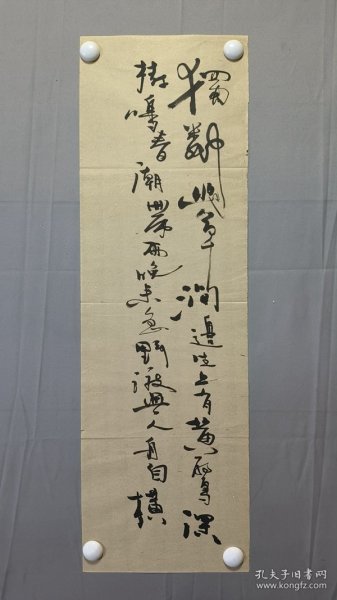 獨憐幽草澗邊生上有黃鸝深
樹鳴春潮帶雨晚来急野渡無人舟自橫
孔夫子旧书网
www.kongfz.com